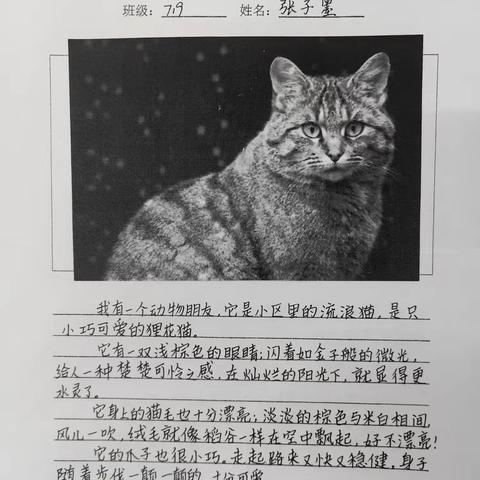 班级：7.9 姓名：张子墨
我有一个动物朋友，它是小区里的流浪猫，是只
小巧可爱的狸花猫。
它有一双浅棕色的眼睛；闪着如金子般的微光，
给人一种楚楚可怜之感，在灿烂的阳光下，就显得更
水灵了。
它身上的猫毛也十分漂亮；淡淡的棕色与米白相间，
风儿一吹，绒毛就像稻谷一样在空中飘起，好不漂亮！
它的爪子也很小巧。走起路来又快又稳健，身子
随着步伐一颠一颠的，十分可爱